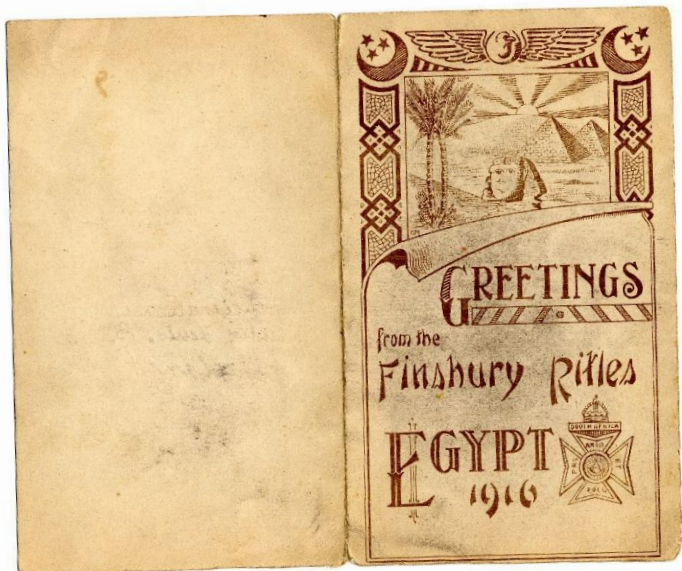 GREETINGS
from the
Finsbury Rifles
EGYPT
1916
SOUTH AFRICA